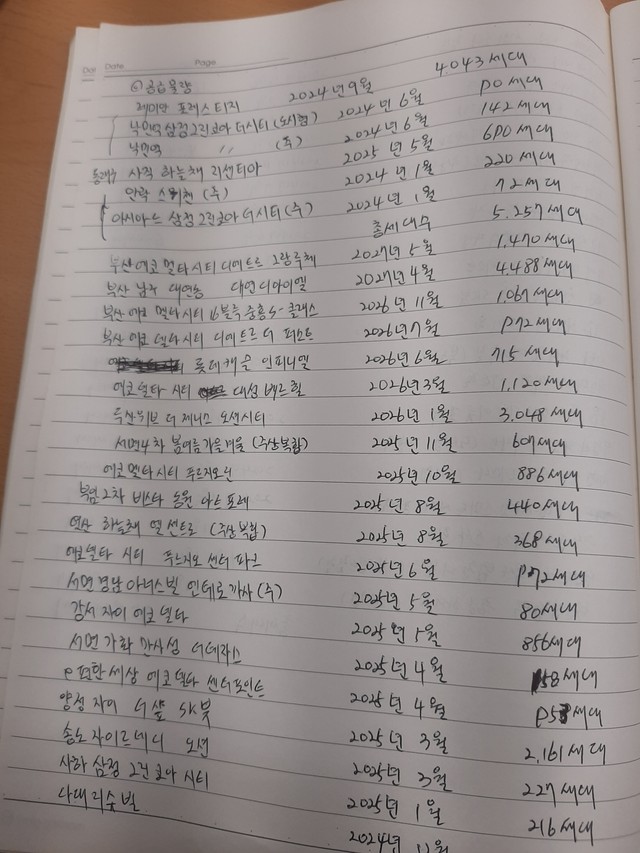 Date
Page
② 공급물량
레미안 포레스티지 2024년 9월 4.043세대
낙민역 삼정그린코아 더시티 (도시형) 2024년 6월 90세대
낙민역 〃 (주) 2024년 6월 142세대
동래구 사직 하늘채 리센티아 2025년 5월 690세대
안락 스위첸 (주) 2024년 1월 220세대
아시아드 삼정 그린코아 더시티 (주) 2024년 1월 72세대
총세대수 5.257세대
부산에코델타시티 디에트르 그랑루체 2027년 5월 1.470세대
부산 남구 대연동 대연 디아이엘 2027년 4월 4.488세대
부산 에코 델타시티 16블록 중흥S-클래스 2026년 11월 1.067세대
부산 에코 델타시티 디에트르 더 퍼스트 2026년 7월 972세대
롯데캐슬 인피니엘 2026년 6월 715세대
에코델타 시티 대성베르힐 2026년 3월 1.120세대
두산위브 더 제니스 오션시티 2026년 1월 3.048세대
서면4차 봄여름가을겨울 (주상복합) 2025년 11월 세대
에코델타시티 푸르지오린 2025년 10월 886세대
2차 비스타 동원 아트포레 2025년 8월 440세대
연산 하늘채 엘센트로 (주상복합) 2025년 8월 368세대
에코델타 시티 푸르지오 센터파크 2025년 6월 972세대
서면경남아너스빌 인테로카사 (주) 2025년 5월 80세대
강서 자이 에코델타 2025년 856세대
서면 가화만사성 더테라스 2025년 4월 58세대
e편한세상 에코델타 센터포인트 2025년 4월 세대
양정 자이 더샵 SK뷰 2025년 3월 2.161세대
송도자이르네디 오션 2025년 3월 227세대
사하 삼정그린코아시티 2025년 1월 216세대
다대리슈빌 2024년